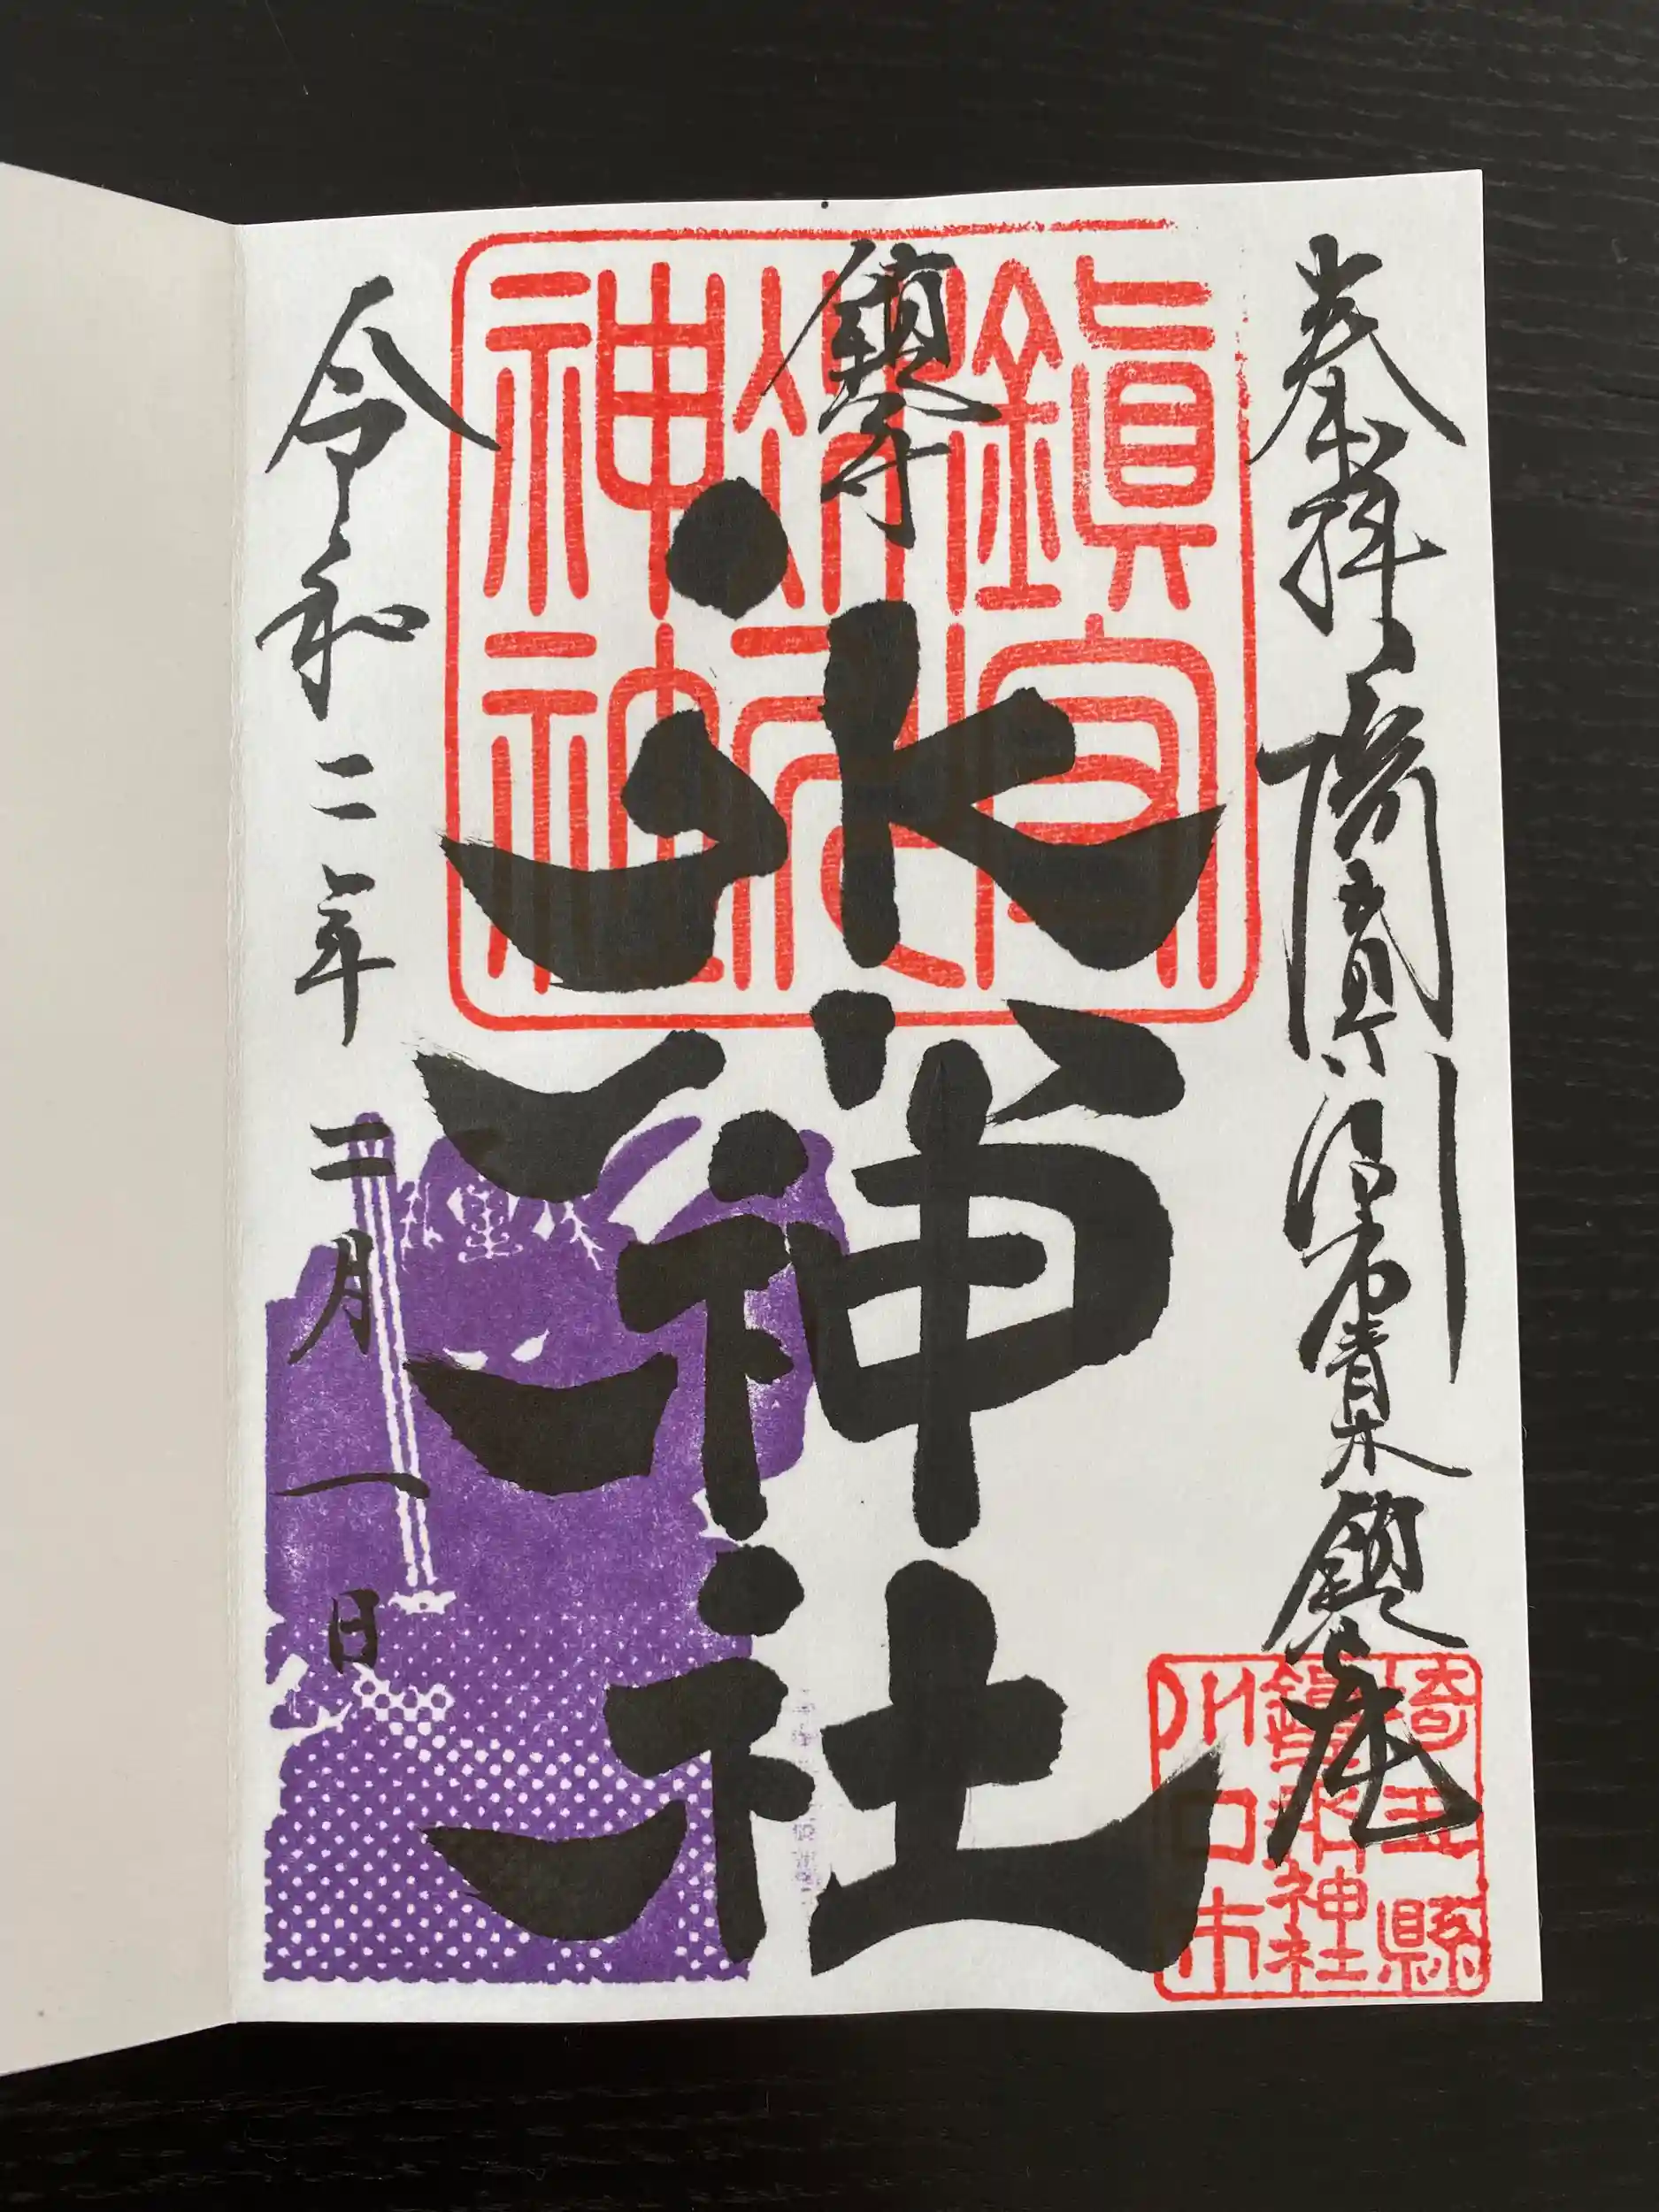 奉拝
青木鎮座
鎮守
氷川神社
令和二年二月一日
鎮守
氷川
神社
埼玉縣
鎮守氷川神社
川口市